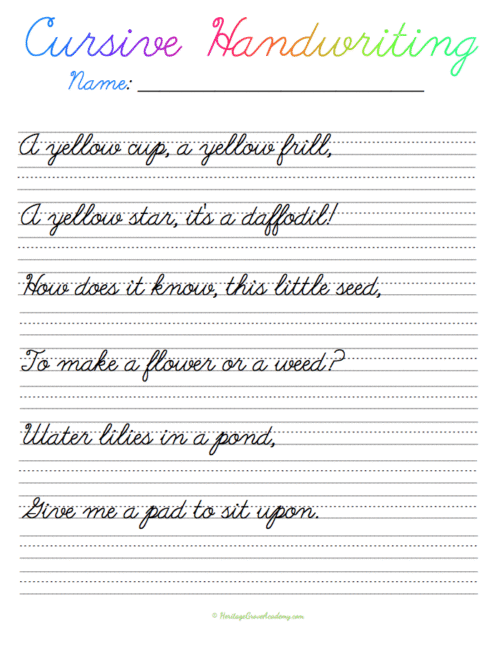 Cursive Handwriting
Name:
A yellow cup, a yellow frill,
A yellow star, it's a daffodil!
How does it know, this little seed,
To make a flower or a weed?
Water lilies in a pond,
Give me a pad to sit upon.
© HeritageGroveAcademy.com